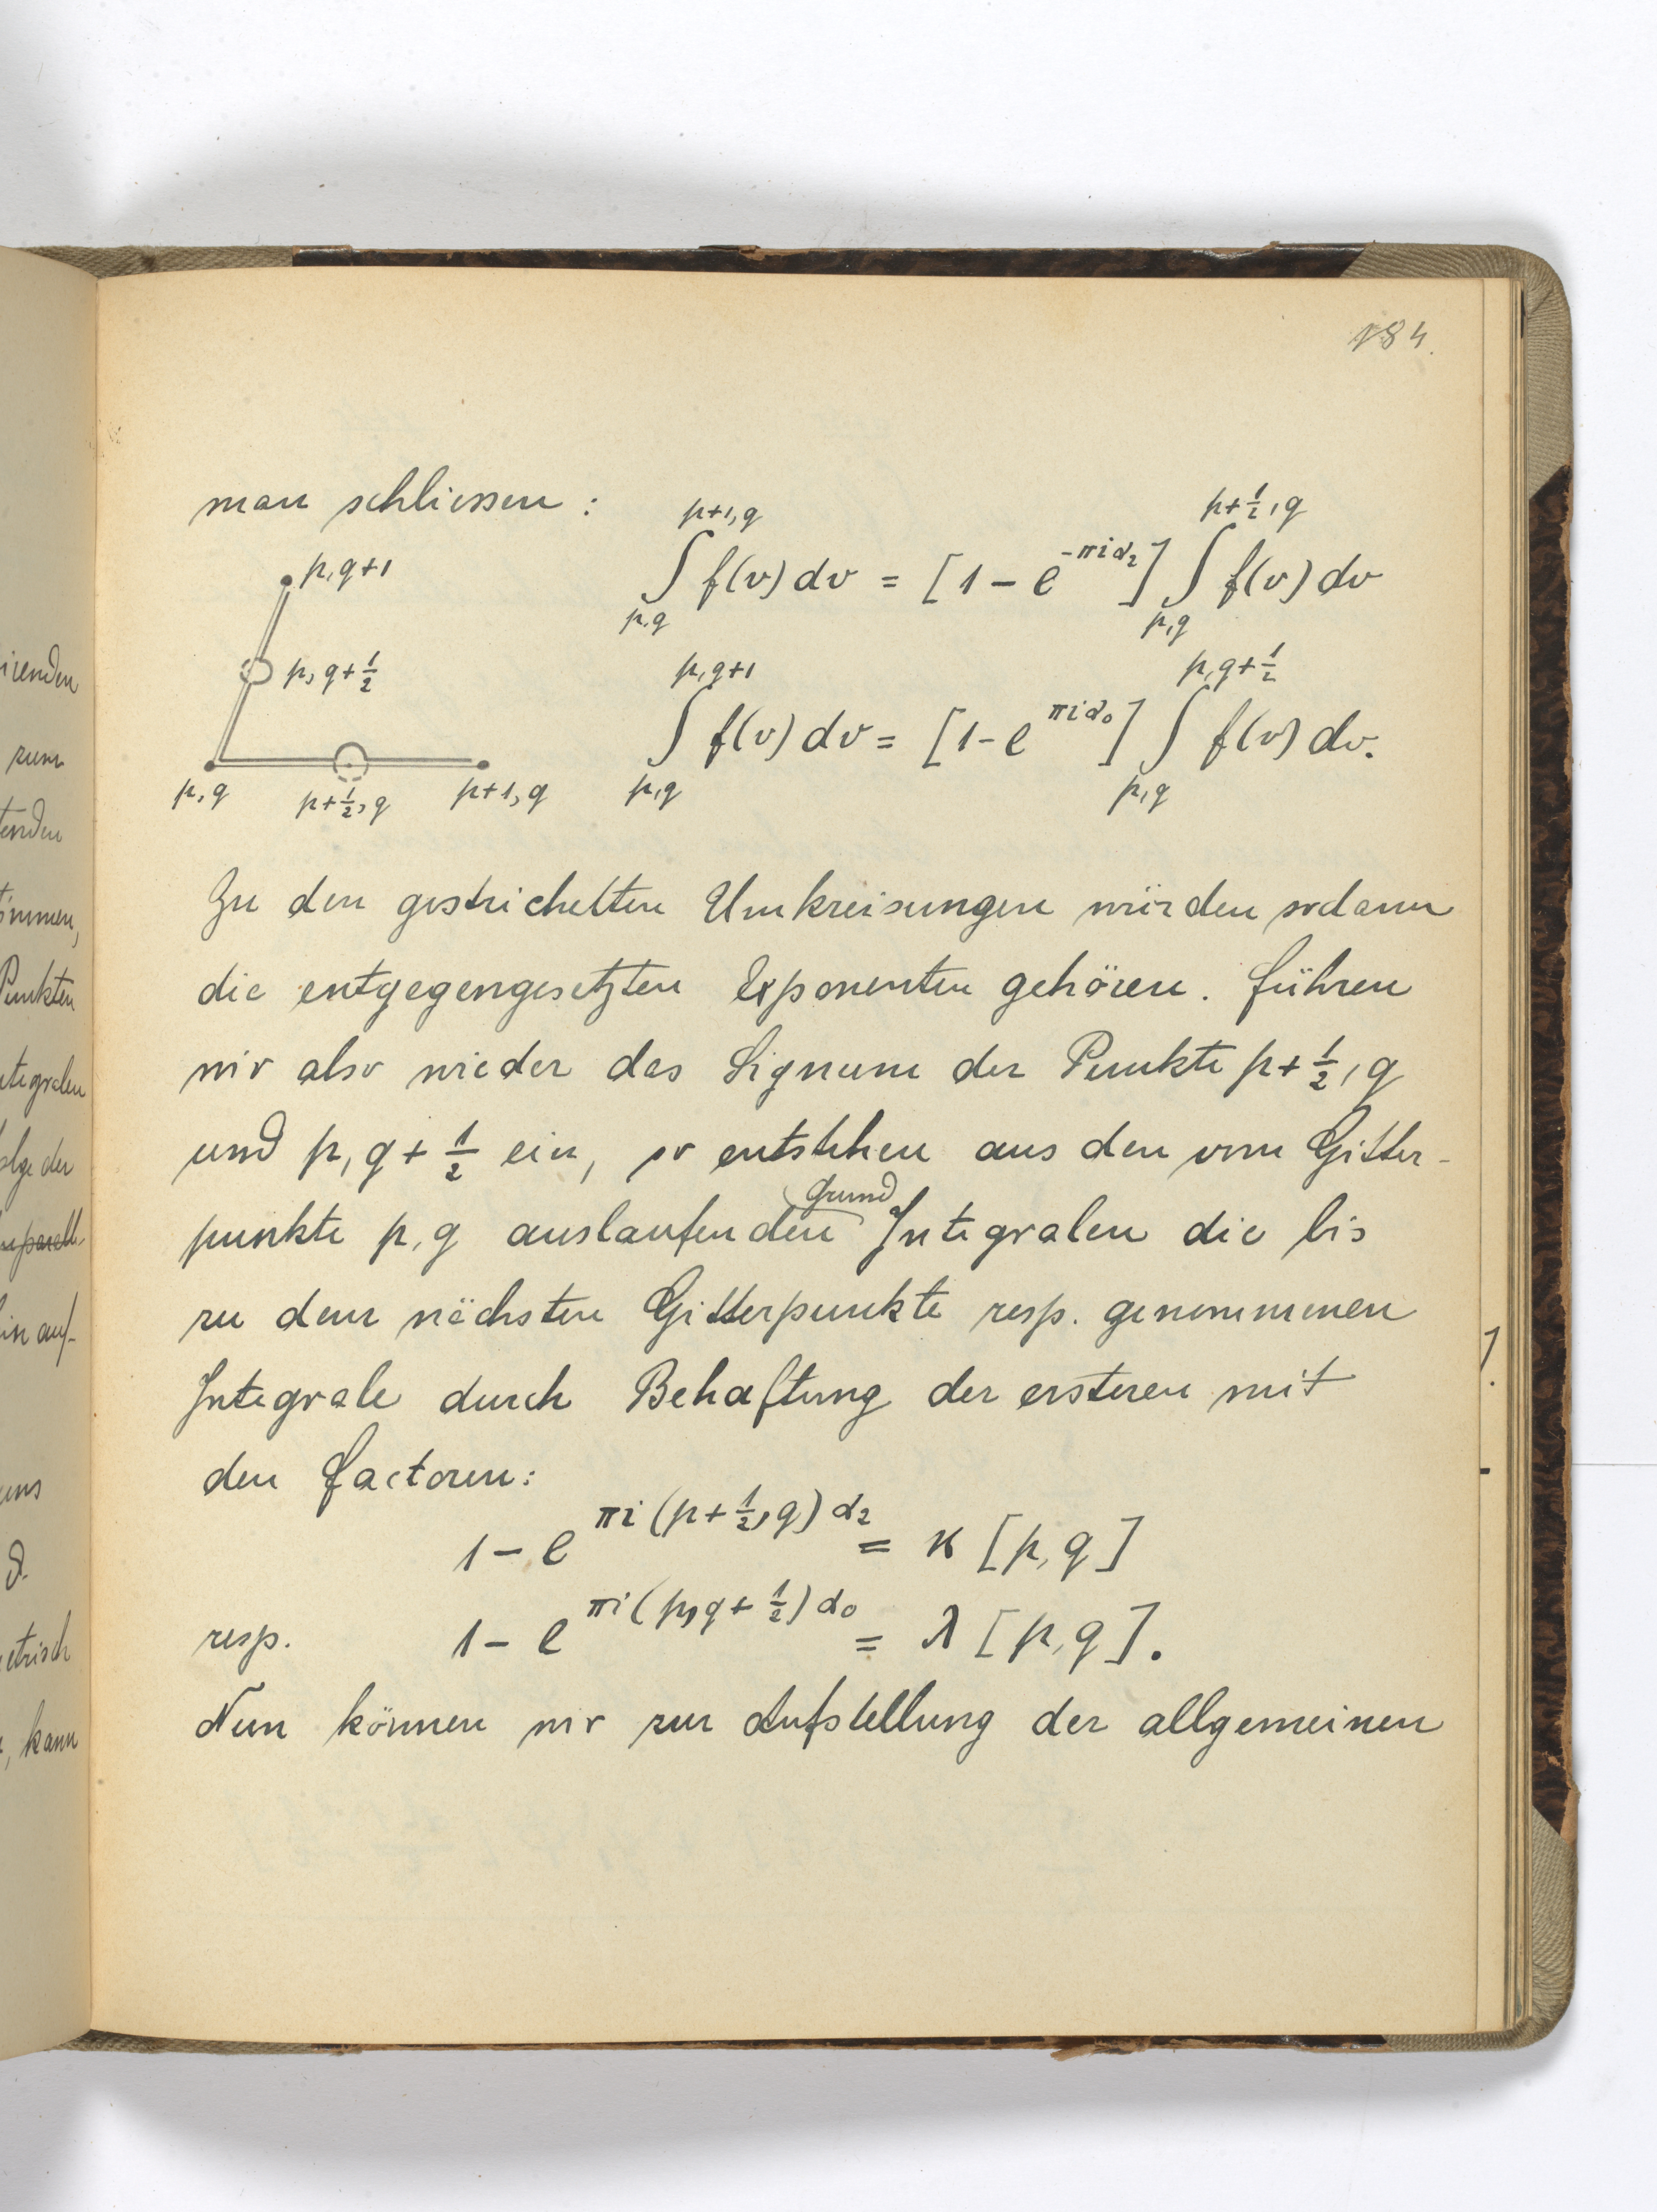 184.
man schliessen:
p,q+1
p, q+½
p,q
p+½, q
p+1, q
∫_{p,q}^{p+1,q} f(v) dv = [1 - e^{-πiα₂}] ∫_{p,q}^{p+½,q} f(v) dv
∫_{p,q}^{p,q+1} f(v) dv = [1 - e^{πiα₀}] ∫_{p,q}^{p,q+½} f(v) dv.
Zu den gestrichelten Umkreisungen würden sodann
die entgegengesetzten Exponenten gehören. Führen
wir also wieder das Signum der Punkte p+½, q
und p, q+½ ein, so entstehen aus den vom Gitter-
punkte p, q auslaufenden Grund Integralen die bis
zu dem nächsten Gitterpunkte resp. genommenen
Integrale durch Behaftung der ersteren mit
den Factoren:
1 - e^{πi(p+½, q)α₂} = κ [p, q]
resp. 1 - e^{πi(p, q+½)α₀} = λ [p, q].
Nun können wir zur Aufstellung der allgemeinen
irenden
zum
tenden
immen,
Punkten
ntegralen
olge der
in auf-
uns
etrisch
, kann